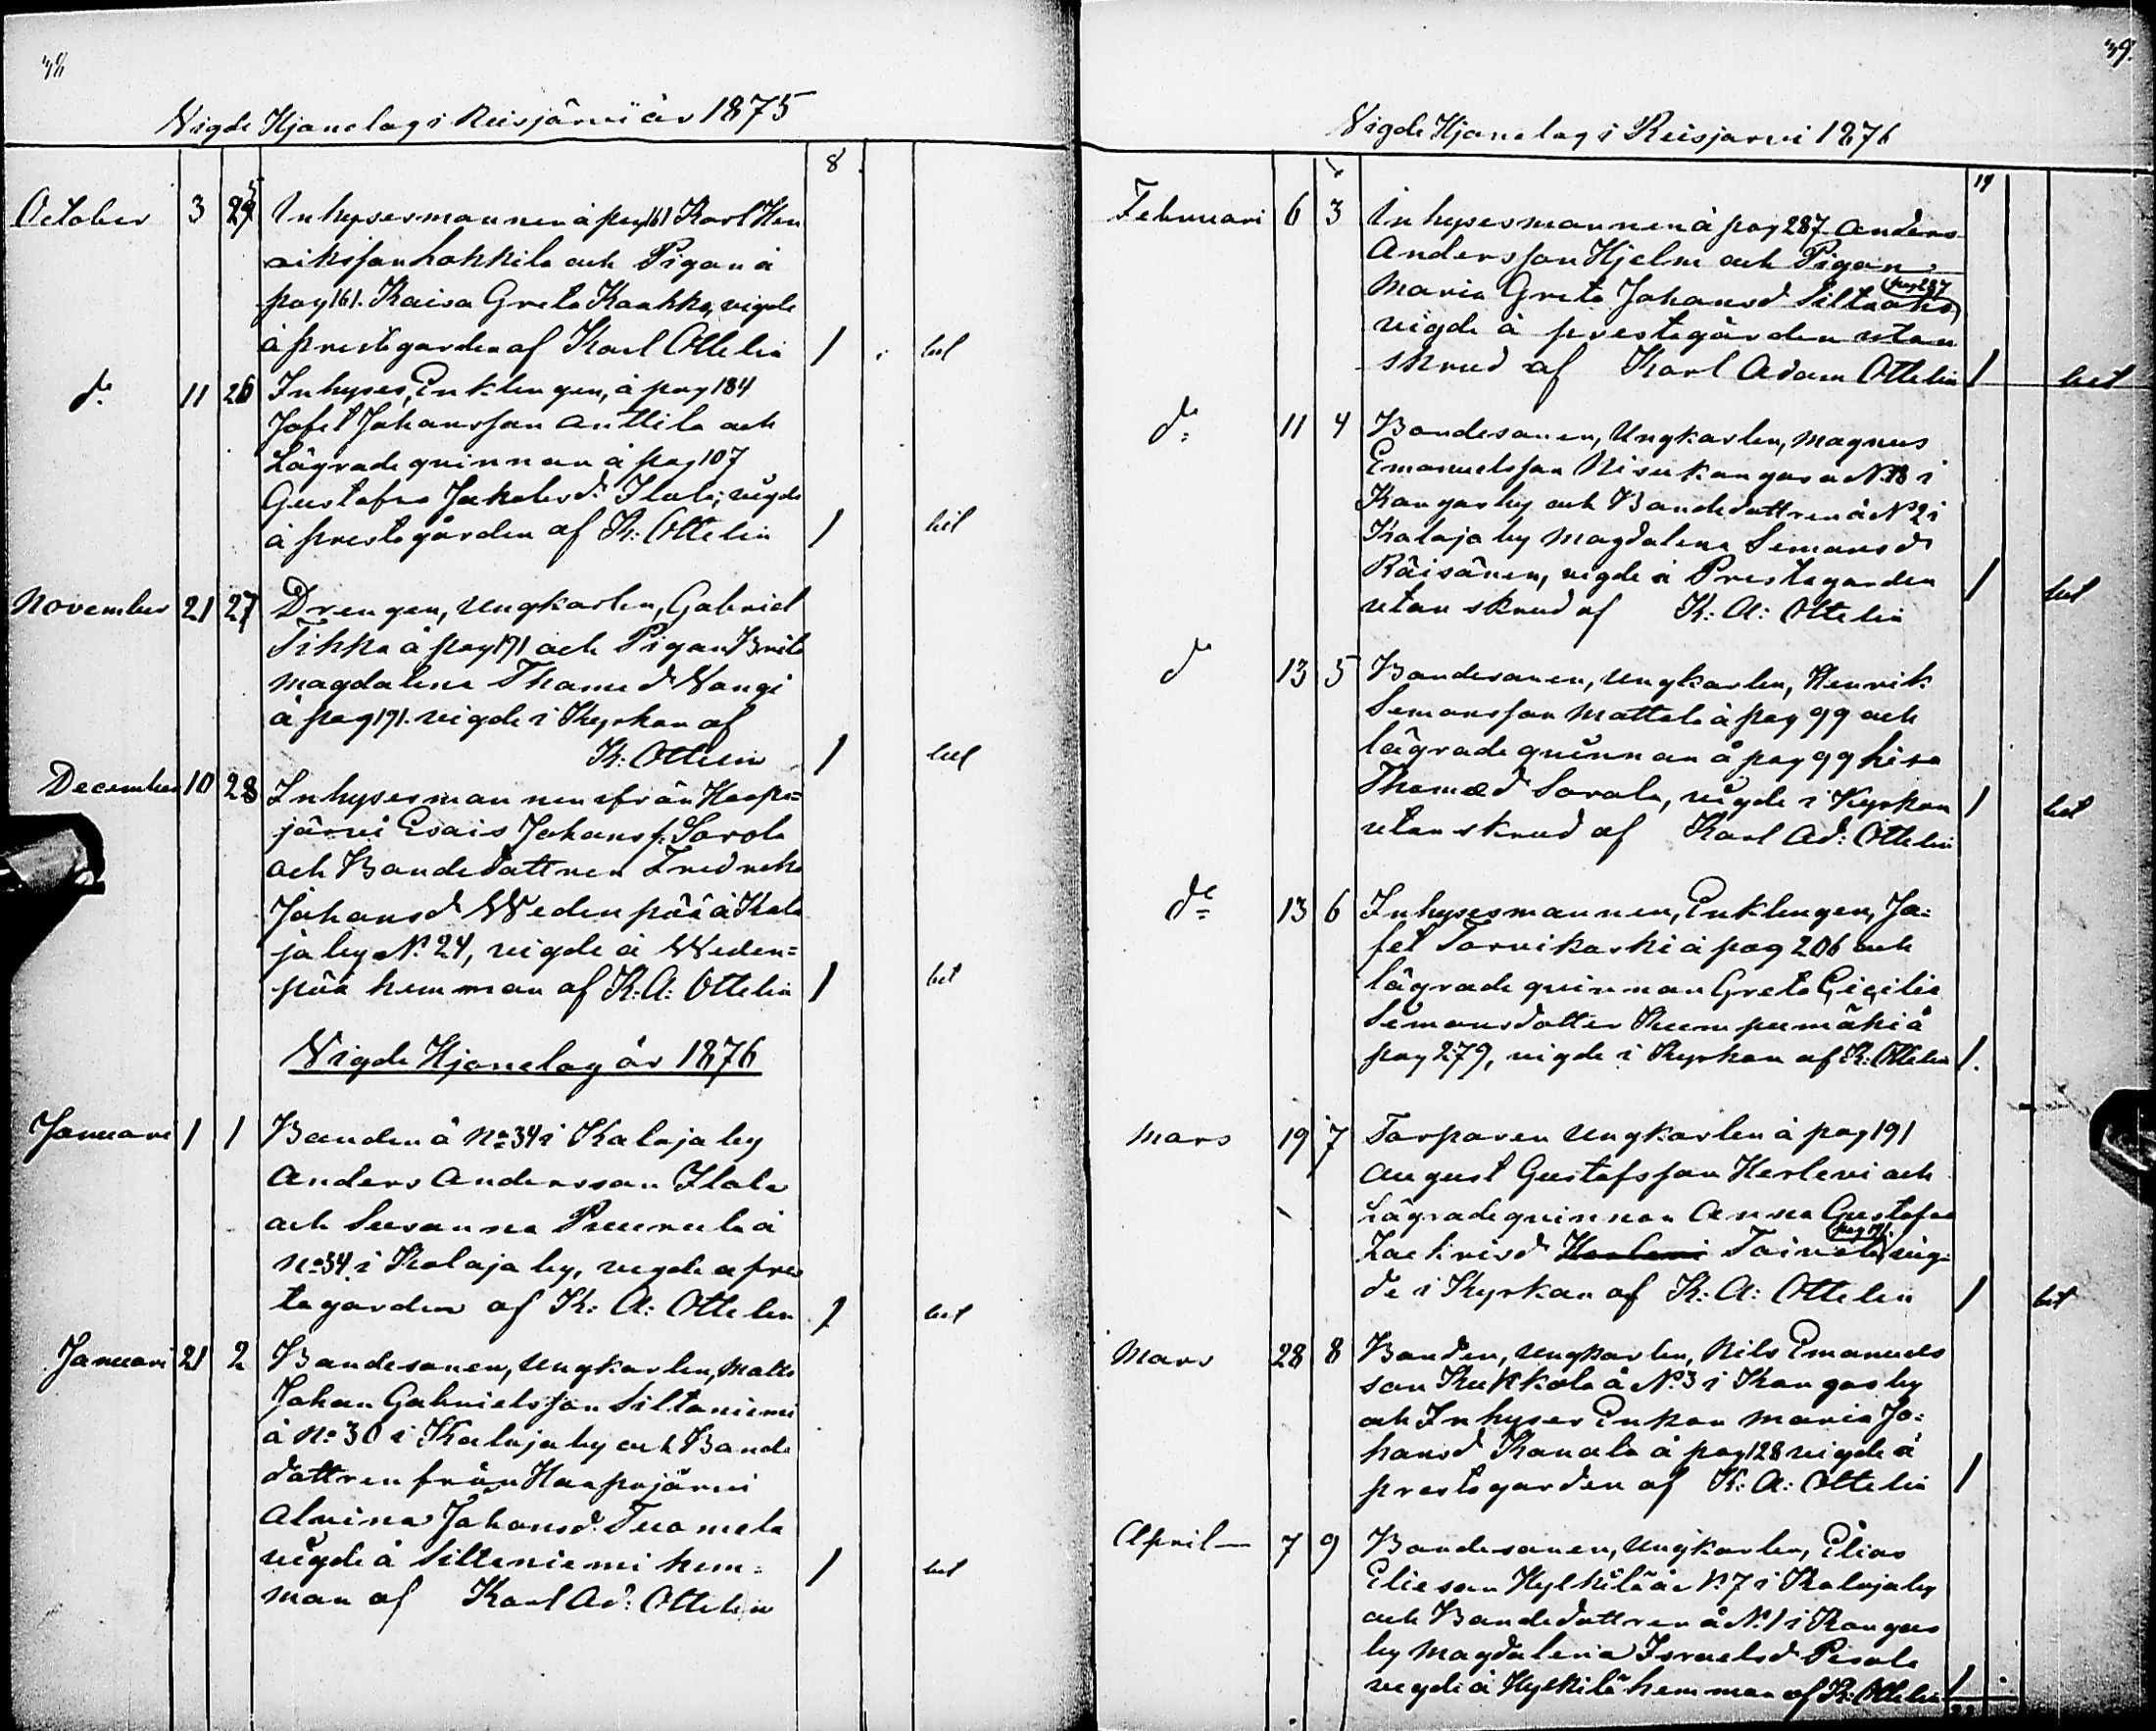 38
Vigde Hjonelag i Reisjärvi år 1875
8
October 3 25 Inhysesmannen å pag 161 Karl Hen
riksson Kokkila och Pigan å
pag 161. Kaisa Greta Kaakko, vigde
å prestgården af Karl Ottelin 1 bet
do 11 26 Inhyses, Enklingen, å pag 184
Jafet Johansson Anttila och
Lägrade qvinnan å pag 107
Gustafva Jakobsd. Ilola, vigde
å prestegården af K: Ottelin 1 bet
November 21 27 Drengen, Ungkarlen, Gabriel
Tikka å pag 171 och Pigan Brita
Magdalena Thomæd Vangi
å pag 171. vigde i Kyrkan af
K: Ottelin 1 bet
December 10 28 Inhysesmannen från Haapa=
järvi Esais Johanss. Sorola
och Bondedottren Fredrika
Johansd Wedenpää å Kala
ja by No 24, vigde å Weden=
pää hemman af K. A: Ottelin 1 bet
Vigde Hjonelag år 1876
Januari 1 1 Bonden å No 34 i Kalaja by
Anders Andersson Ilola
och Susanna Puurula å
No 34 i Kalaja by, vigde å pres
tegården af K: A: Ottelin 1 bet
Januari 21 2 Bondesonen, Ungkarlen, Matts
Johan Gabrielsson Siltaniemi
å No 30 i Kalaja by och Bonde
dottren från Haapajärvi
Alvina Johansd. Tuomela
vigde å Siltaniemi hem=
man af Karl Ad: Ottelin 1 bet
39.
Vigde Hjonelag i Reisjärvi 1876
19
Februari 6 3 Inhysesmannen å pag 287 Anders
Andersson Hjelm och Pigan
Maria Greta Johansd Siltaaho pag 287
vigde å prestegården utan
skrud af Karl Adam Ottelin 1 bet
do 11 4 Bondesonen, Ungkarlen, Magnus
Emanuelsson Nisukangas å No 18 i
Kangas by och Bondedottren å No 2 i
Kalaja by Magdalena Simonsd
Räisänen, vigde å Prestegården
utan skrud af K: A: Ottelin 1 bet
do 13 5 Bondesonen, Ungkarlen, Henrik
Simonsson Mattala å pag 99 och
lägrade qvinnan å pag 99 Lisa
Thomæd Sorola, vigde i Kyrkan
utan skrud af Karl Ad: Ottelin 1 bet
do 13 6 Inhysesmannen, Enklingen, Ja=
fet Torvikoski å pag 206 och
lägrade qvinnan Greta Cicilia
Simonsdotter Kumpumäki å
pag 279, vigde i Kyrkan af K: Ottelin 1.
Mars 19 7 Torparen Ungkarlen å pag 191
August Gustafsson Herlevi och
Lägrade qvinnan Anna Gustafva
Zachrisd Herlevi Toivola pag 191. vig=
de i Kyrkan af K: A: Ottelin 1 bet
Mars 28 8 Bonden, Ungkarlen, Nils Emanuels
son Kukkola å No 3 i Kangas by
och Inhyses Enkan Maria Jo=
hansd Kanala å pag 128 vigde å
prestegården af K: A: Ottelin 1
April 7 9 Bondesonen, Ungkarlen, Elias
Eliesson Hylkilä å No 7 i Kalaja by
och Bondedottren å No 1 i Kangas
by Magdalena Israelsd Pesola
vigde å Hylkilä hemman af K: Ottelin 1